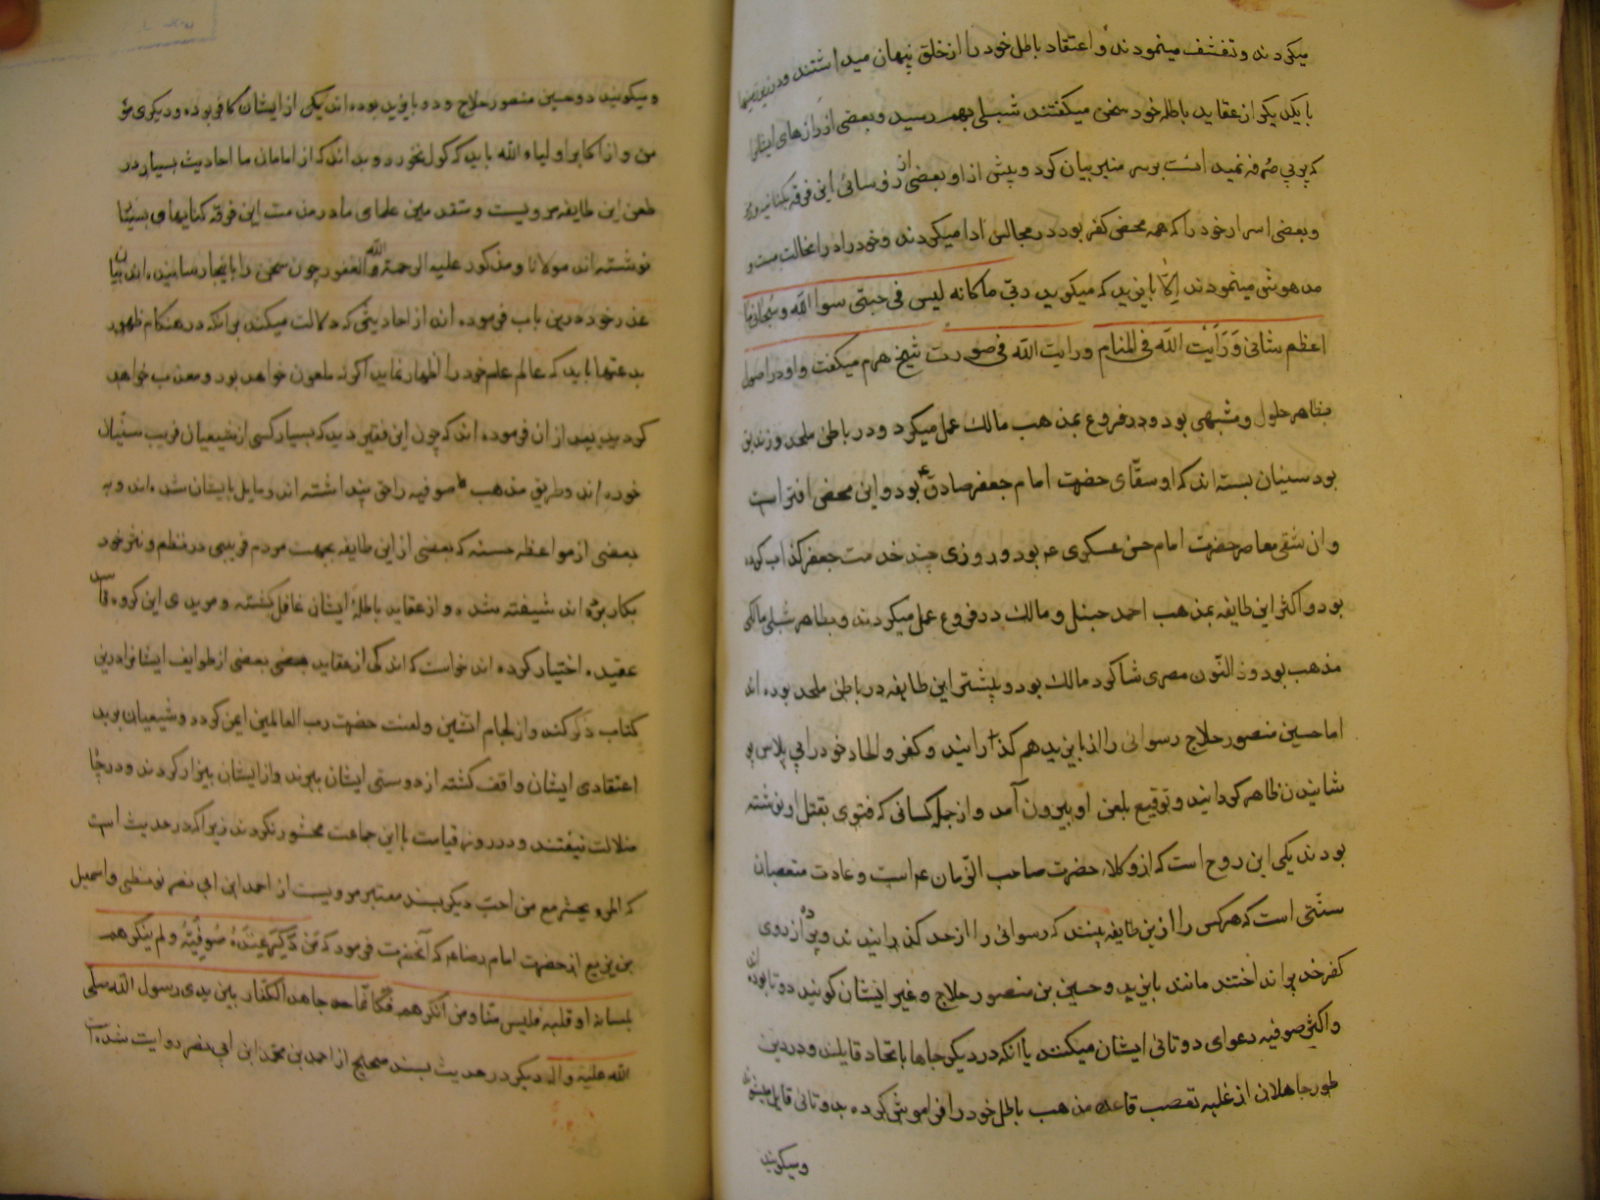 میکردند و تقشف مینمودند و اعتقاد باطل خود را از خلق پنهان میداشتند و در زیر زمینها
با یکدیگر از عقاید باطله خود سخن میگفتند شبلی بهم رسید و بعضی از رازهای ایشانرا
بر سر منبر بیان کرد و پیش از او بعضی از رؤسائی این فرقه
و بعضی اسرار خود را که همه محض کفر بود در مجالس ادا میکردند و خود را در آنحالت مست و
مدهوش مینمودند امّا بایزید که میگوید لیس فی جبتی سوا اللّه و سبحانی ما
اعظم شانی وَ رَایَت اللّه فی المنام و رایت اللّه فی صورت شیخ هرم میگفت و او در اصول
بظاهر حلول و مشبهی بود و در فروع بمذهب مالک عمل میکرد و در باطن ملحد و زندیق
بود سنیان بسته اند که او سقّای حضرت امام جعفر صادق ع بود و این محض افتر است
و ان شقی معاصر حضرت امام حسن عسکری عم بود و روزی چند خدمت جعفر کذاب کرده
بود و اکثر این طایفه بمذهب احمد حبنل و مالک در فروع عمل میکردند و بظاهر شبلی مالکی
مذهب بود و ذ النّون مصری شاکرد مالک بود و پیشتر این طایفه در باطن ملحد بوده اند
اما حسین منصور حلاج رسوائی را از بایزید هم کذرانید و کفر و الحاد خود را بی پلاس پو
شانیدن ظاهر کردانید و توقیع بلعن او بیرون آمد و از جمله کسانی که فتوی بقتل او نوشته
بودند یکی ابن روح است که از وکلاء حضرت صاحب الزمان عم است و عادت متعصبان
سنّتی است که هر کس را از ین طایفه بینند که رسوائی را از حد کذرانیدند و پرده از روی
کفر خود بر انداختند مانند بایزید و حسین بن منصور حلاج و غیر ایشان کویند دو تا بوده اند
و اکثر صوفیه دعوای دو تائی ایشان میکنند با آنکه در دیکر جاها باتحاد قایلند و در این
طور جاهلان از غلبه تعصب قاعده مذهب باطل خود را فراموش کرده بدو تائی قایل میشوند
و میکویند
و میکویند دو حسین منصور حلاج و دو بایزید بوده اند یکی از ایشان کافر بوده و دیکری مؤ
من و از اکابر اولیاء اللّه باید که کول نخورد و بداند که از امامان ما احادیث بسیار در
طعن این طایفه مرویست و متقدمین علمای ما در مذمت این فرقه کتابهای بسیار
نوشته اند مولانا و مذکور علیه الرحمة و الغفور چون سخن را باینجا رسانیده اند بیان
عذر خود درین باب فرموده اند از احادیثی که دلالت میکند بر انکه در هنکام ظهور
بدعتها باید که عالم علم خود را اظهار نماید اکر نه ملعون خواهد بود و معذب خواهد
کردید بعد از ان فرموده اند که چون این فقیر دید که بسیار کسی از شیعیان فریب سنّیان
خورده اند و طریق مذهب صوفیه را حق پنداشته اند و مایل بایشان شده اند و به
بعضی از مواعظ حسنه که بعضی از این طایفه بجهت مردم فریبی در نظم و نثر خود
بکار برده اند شیفته شده و از عقاید باطلۀ ایشان غافل کشته و مریدی این کروه فاسد
عقیده اختیار کرده اند خواست که اندکی از عقاید بعضی از طوایف ایشانرا درین
کتاب ذکر کند و از لجام اتشین و لعنت حضرت رب العالمین ایمن کردد و شیعیان بر بد
اعتقادی ایشان واقف کشته از دوستی ایشان ببرند و از ایشان بیزار کردند و در چاه
ضلالت نیفتند و در روز قیامت با این جماعت محشور نکردند زیرا که در حدیث است
که المرء یحشر مع من احب دیکر بسند معتبر مرویست از احمد ابن ابی نصر بزنطی و اسمعیل
بن بزیع از حضرت امام رضا عم که آنحضرت فرمود که مَن ذُکِرَ عِندَهُ صُوفِیَّة و لم ینکر هم
بلسانه او قلبه فلیس منّا و من انکر هم فکانّما جاهد الکفار بین یدی رسول اللّه صلی
اللّه علیه و آله دیکر در حدیث بسند صحیح از احمد بن محمّد ابن ابی نصر روایت شده است